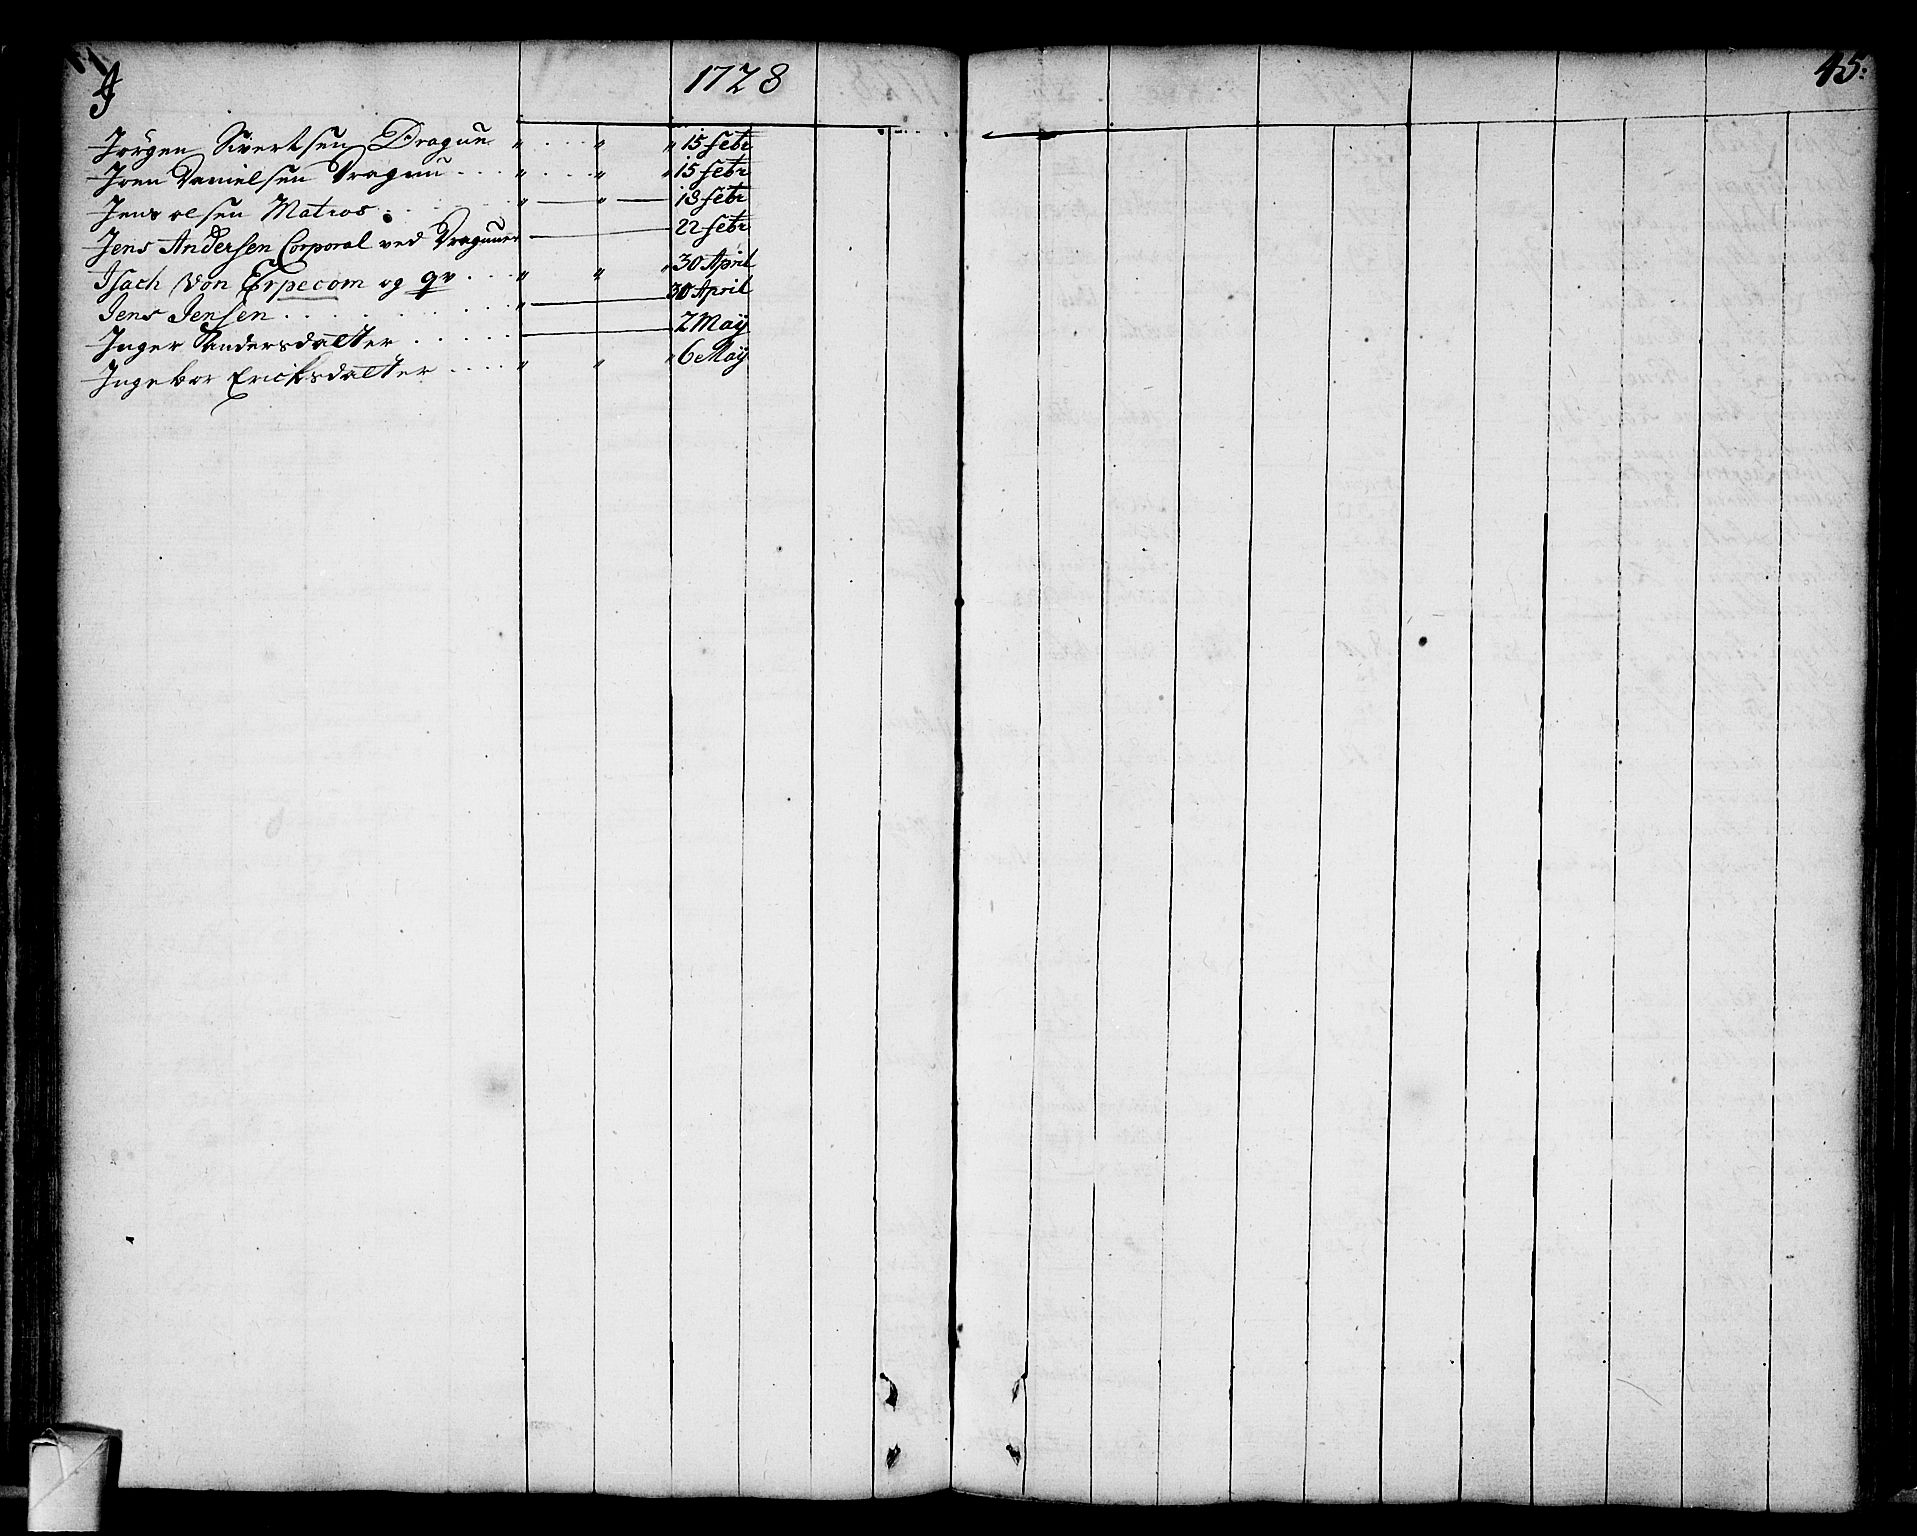 J
1728
45:
Jörgen Sivertsen Dragun " " " 15 febr
Joen Danielsen Dragun " " " 15 febr
Jens olsen Matros " " 18 febr
Jens Andersen Corporal ved Draguner 22 febr
Isach von Erpecom og qv " " " 30 April
Jens Jensen " 30 April
Inger Andersdatter 2 May
Ingebor Ericksdatter " " " 6 May